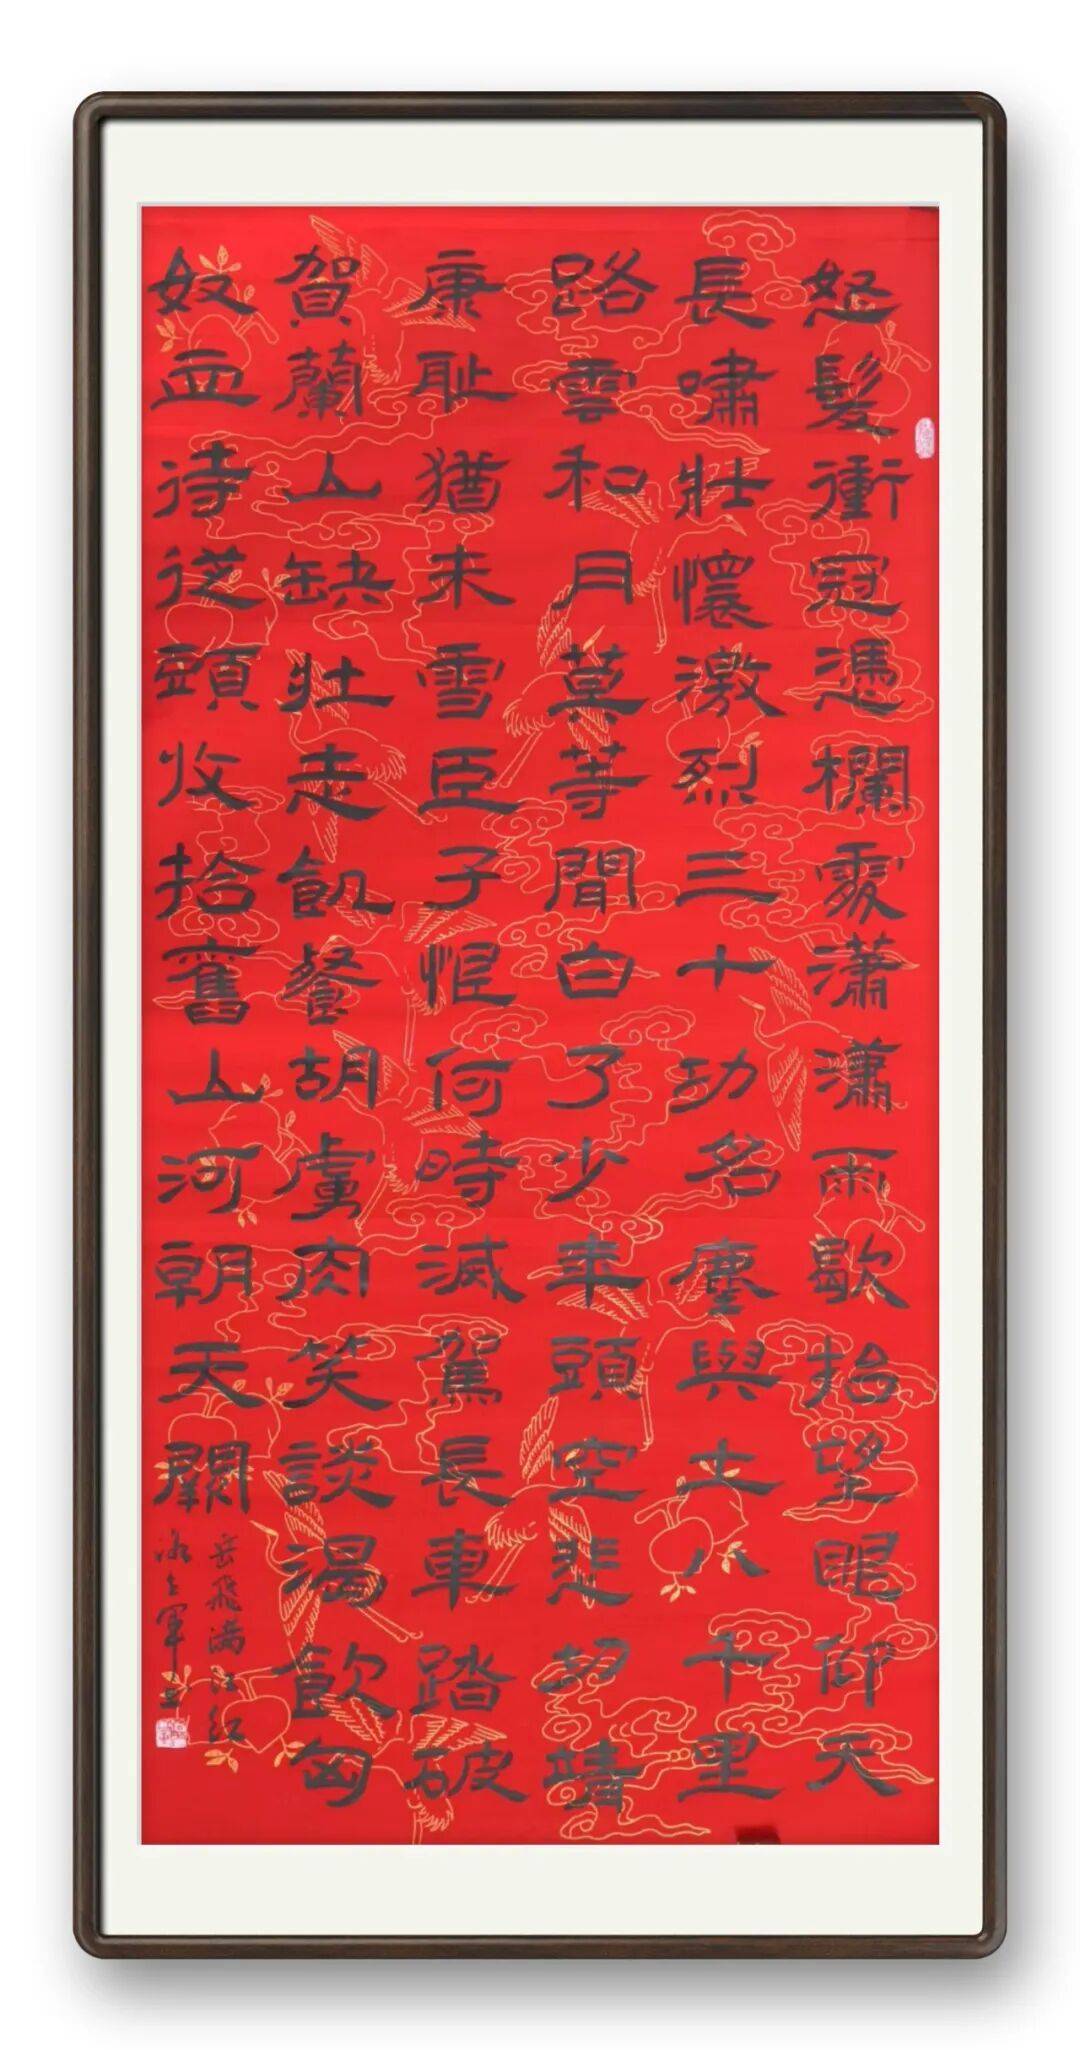 怒髮衝冠憑欄處瀟瀟雨歇抬望眼仰天
長嘯壯懷激烈三十功名塵與土八千里
路雲和月莫等閒白了少年頭空悲切靖
康耻猶未雪臣子恨何時滅駕長車踏破
賀蘭山缺壯志飢餐胡虜肉笑談渴飲匈
奴血待從頭收拾舊山河朝天闕
岳飛滿江紅